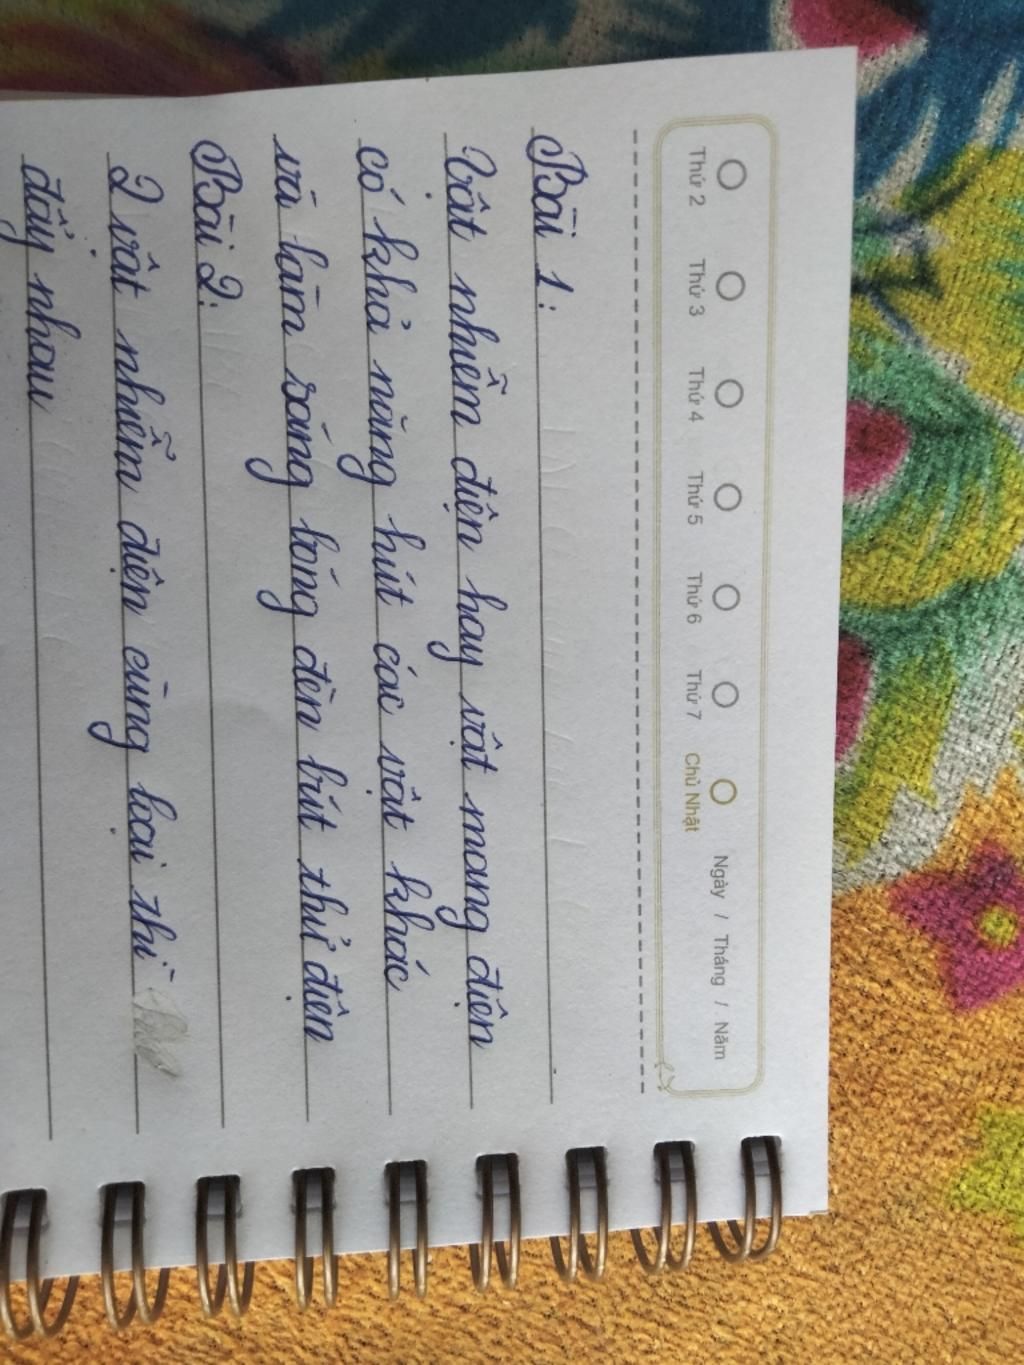 Thứ 2 Thứ 3 Thứ 4 Thứ 5 Thứ 6 Thứ 7 Chủ Nhật Ngày / Tháng / Năm
Bài 1:
Vật nhiễm điện hay vật mang điện
có khả năng hút các vật khác
và làm sáng bóng đèn bút thử điện
Bài 2:
2 vật nhiễm điện cùng loại thì
đẩy nhau